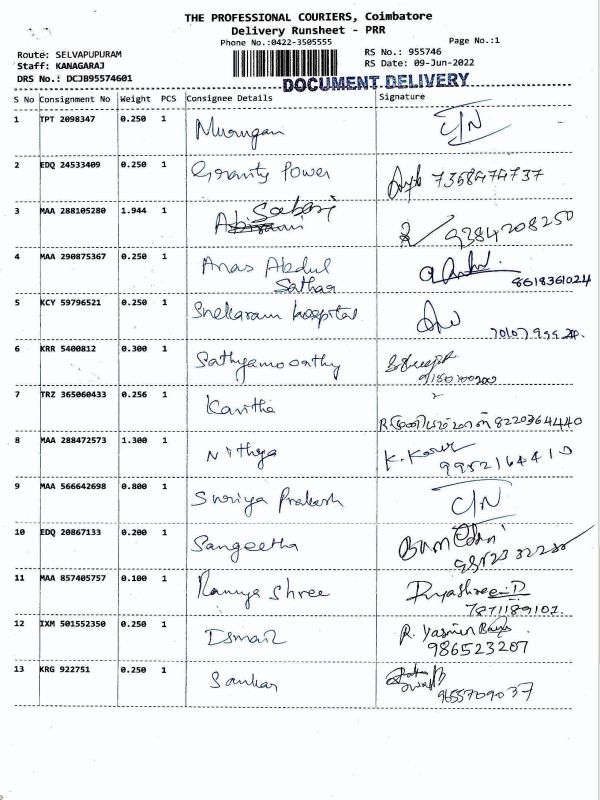 THE PROFESSIONAL COURIERS, Coimbatore
Delivery Runsheet - PRR
Phone No.:0422-3505555 Page No.:1
Route: SELVAPUPURAM RS No.: 955746
Staff: KANAGARAJ RS Date: 09-Jun-2022
DRS No.: DCJB95574601
DOCUMENT DELIVERY
S No Consignment No Weight PCS Consignee Details Signature
1 TPT 2098347 0.250 1 Murugan C/N
2 EDQ 24533409 0.250 1 Gravity Power 7358474737
3 MAA 288105280 1.944 1 Sabari 9384208250
4 MAA 290875367 0.250 1 Anas Abdul
Sathar 8618361024
5 KCY 59796521 0.250 1 Shekaram hospital
6 KRR 5400812 0.300 1 Sathyamoorthy
7 TRZ 365060433 0.256 1 Kavitha 8220364440
8 MAA 288472573 1.300 1 Nithya K.
9952164410
9 MAA 566642698 0.800 1 Suriya Prakash C/N
10 EDQ 20867133 0.200 1 Sangeetha
11 MAA 857405757 0.100 1 Ramya Shree
7871189101.
12 IXM 501552350 0.250 1 Ismail R. Yasmin
986523207
13 KRG 922751 0.250 1 Sankar
9655709037